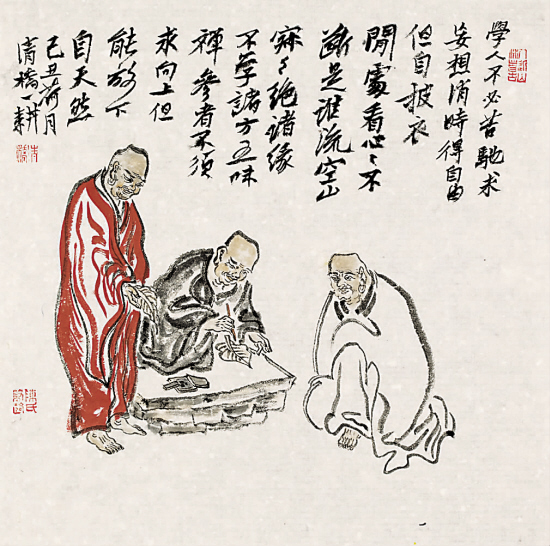 學人不必苦馳求
妄想消時得自由
但自披衣
閒處看心〻不
斷是誰流空山
寂〻絕諸緣
不學諸方五味
禪參者不須
求向上但
能放下
自天然
己丑荷月
清橋一耕